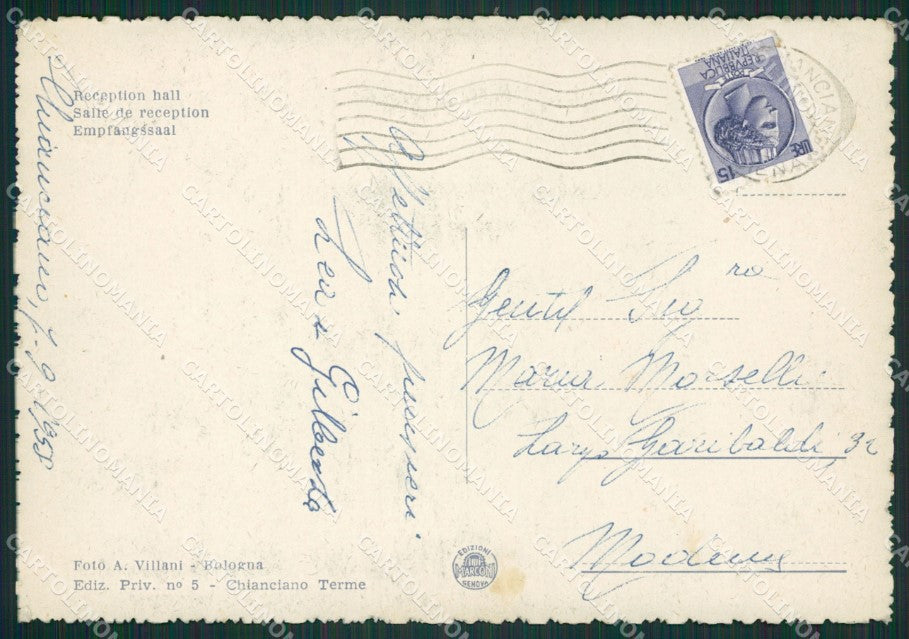 Reception hall
Salle de reception
Empfangssaal
Chianciano, 7-9-1958
Affettuosi pensieri
Lea e Gilberta
REPVBBLICA
ITALIANA
POSTE
LIRE 15
Gentil Sig.ra
Maria Morselli
Largo Garibaldi 32
Modena
Foto A. Villani - Bologna
Ediz. Priv. nº 5 - Chianciano Terme
EDIZIONI
MARCONI
GENOVA
CARTOLINOMANIA